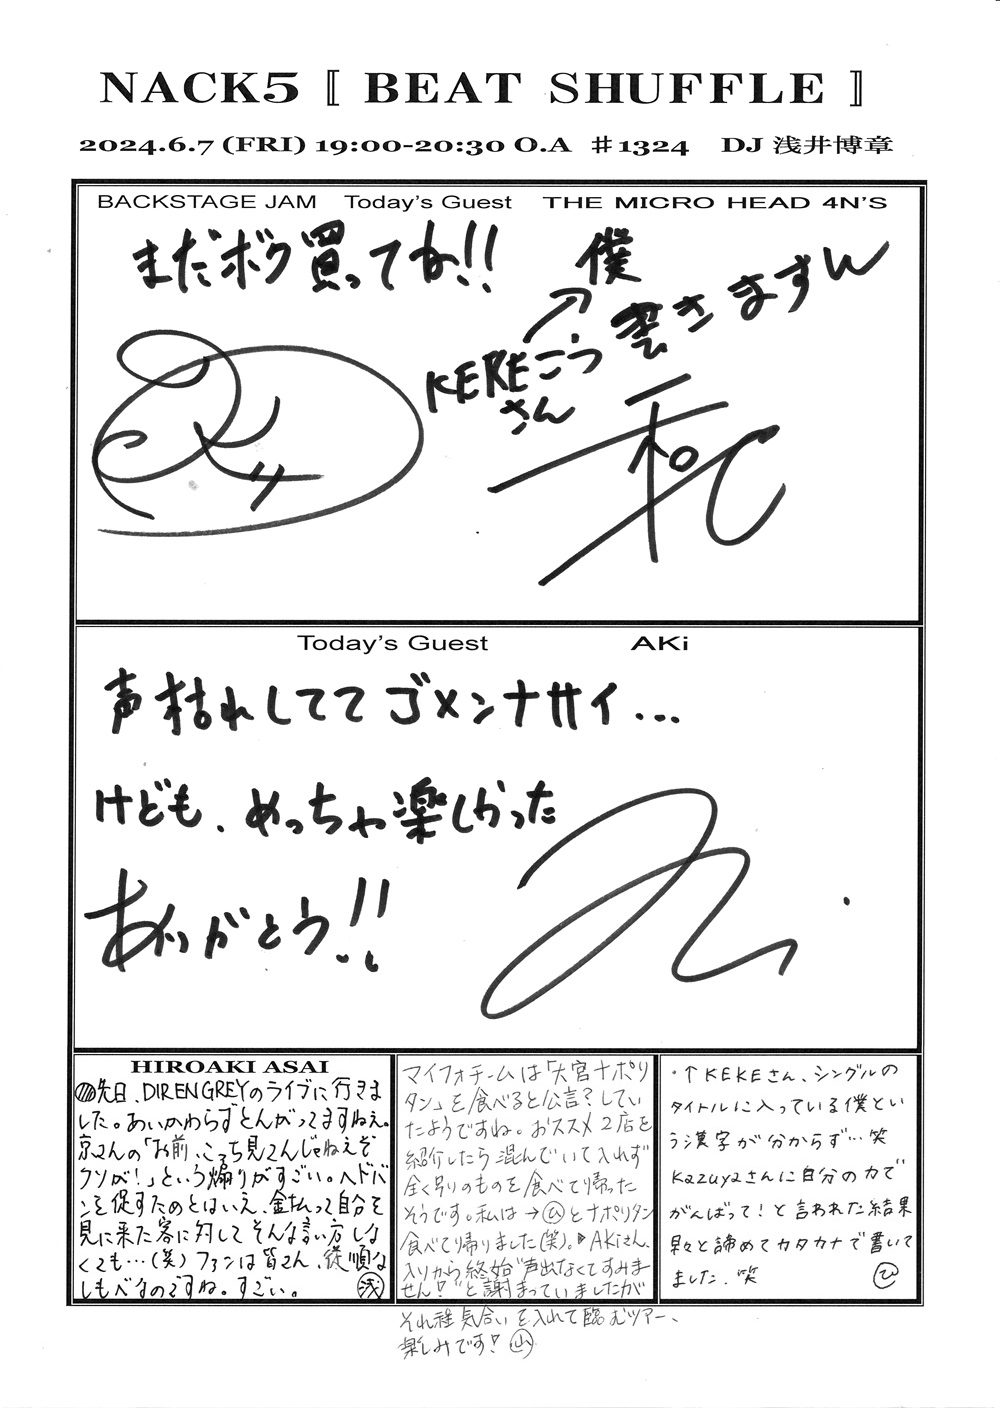 NACK5 〚 BEAT SHUFFLE 〛
2024.6.7 (FRI) 19:00-20:30 O.A ＃1324 DJ 浅井博章
BACKSTAGE JAM Today's Guest THE MICRO HEAD 4N'S
まだボク買ってね!!
僕
KEKEさん
こう書きますん
Today's Guest AKi
声枯れしてて ゴメンナサイ...
けども、めっちゃ楽しかった
ありがとう!!
HIROAKI ASAI
先日、DIR EN GREYのライブに行きま
した。あいかわらずとんがってますねぇ。
京さんの「お前、こっち見てんじゃねぇぞ
クソが!」という煽りがすごい。ヘドバ
ンを促すためとはいえ、金払って自分を
見に来た客に対してそんな言い方しな
くても…(笑)ファンは皆さん、従順な
しもべなのですね。すごい。 浅
マイフォチームは「大宮ナポリ
タン」を食べると公言?してい
たようですね。おススメ2店を
紹介したら混んでいて入れず
全く別のものを食べて帰った
そうです。私は→㋪とナポリタン
食べて帰りました(笑)。▶AKiさん、
入りから終始"声出なくてすみま
せん!"と謝まっていましたが
それ程気合いを入れて臨むツアー、
楽しみです! 山
・↑KEKEさん、シングルの
タイトルに入っている僕とい
う漢字が分からず…笑
Kazuyaさんに自分の力で
がんばって!と言われた結果
早々と諦めてカタカナで書いて
ました。笑 ひ